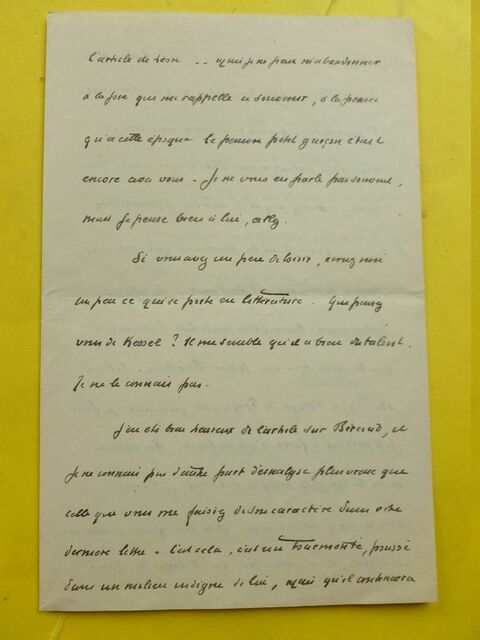 l'article de
mais je ne peux m'abandonner
à la joie que me rappelle ce souvenir, à la pensée
qu'à cette époque le pauvre petit garçon était
encore avec vous - Je ne vous en parle pas souvent,
mais je pense bien à lui, allez.
Si vous avez un peu de loisir, écrivez moi
un peu ce qui se porte en littérature. Que pensez
vous de Kessel ? Il me semble qu'il a bien du talent.
Je ne le connais pas.
J'ai été bien heureux de l'article sur Béraud, et
je ne connais pas d'autre part d'analyse plus vraie que
celle que vous me faisiez de son caractère dans votre
dernière lettre - C'est cela, c'est un tourmenté, poussé
dans un milieu indigne de lui, mais qu'il